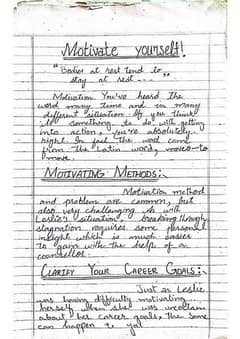 Motivate yourself!
"Bodies at rest tend to
stay at rest ---"
Motivation You've heard the
word many time and in many
different situation. If you think
has something to do with getting
into action, you're absolutely
right. In fact the word came
from the Latin word, moves=to
move.
MOTIVATING METHODS:-
Motivation method
and problem are common, but
also very challenging. As with
Leslie's situation, breaking through
stagnation requires some personal
insight which is much easier
to gain with the help of a
counsellor.
CLARIFY YOUR CAREER GOALS:-
Just as Leslie
was having difficulty motivating
herself when she was uncertain
about her career goals the same
can happen to you